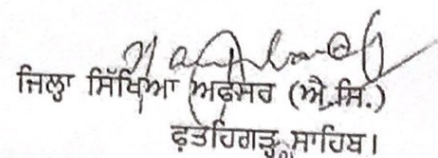 ਜਿਲ੍ਹਾ ਸਿੱਖਿਆ ਅਫਸਰ (ਐ.ਸਿ.)
ਫ਼ਤਹਿਗੜ੍ਹ ਸਾਹਿਬ।